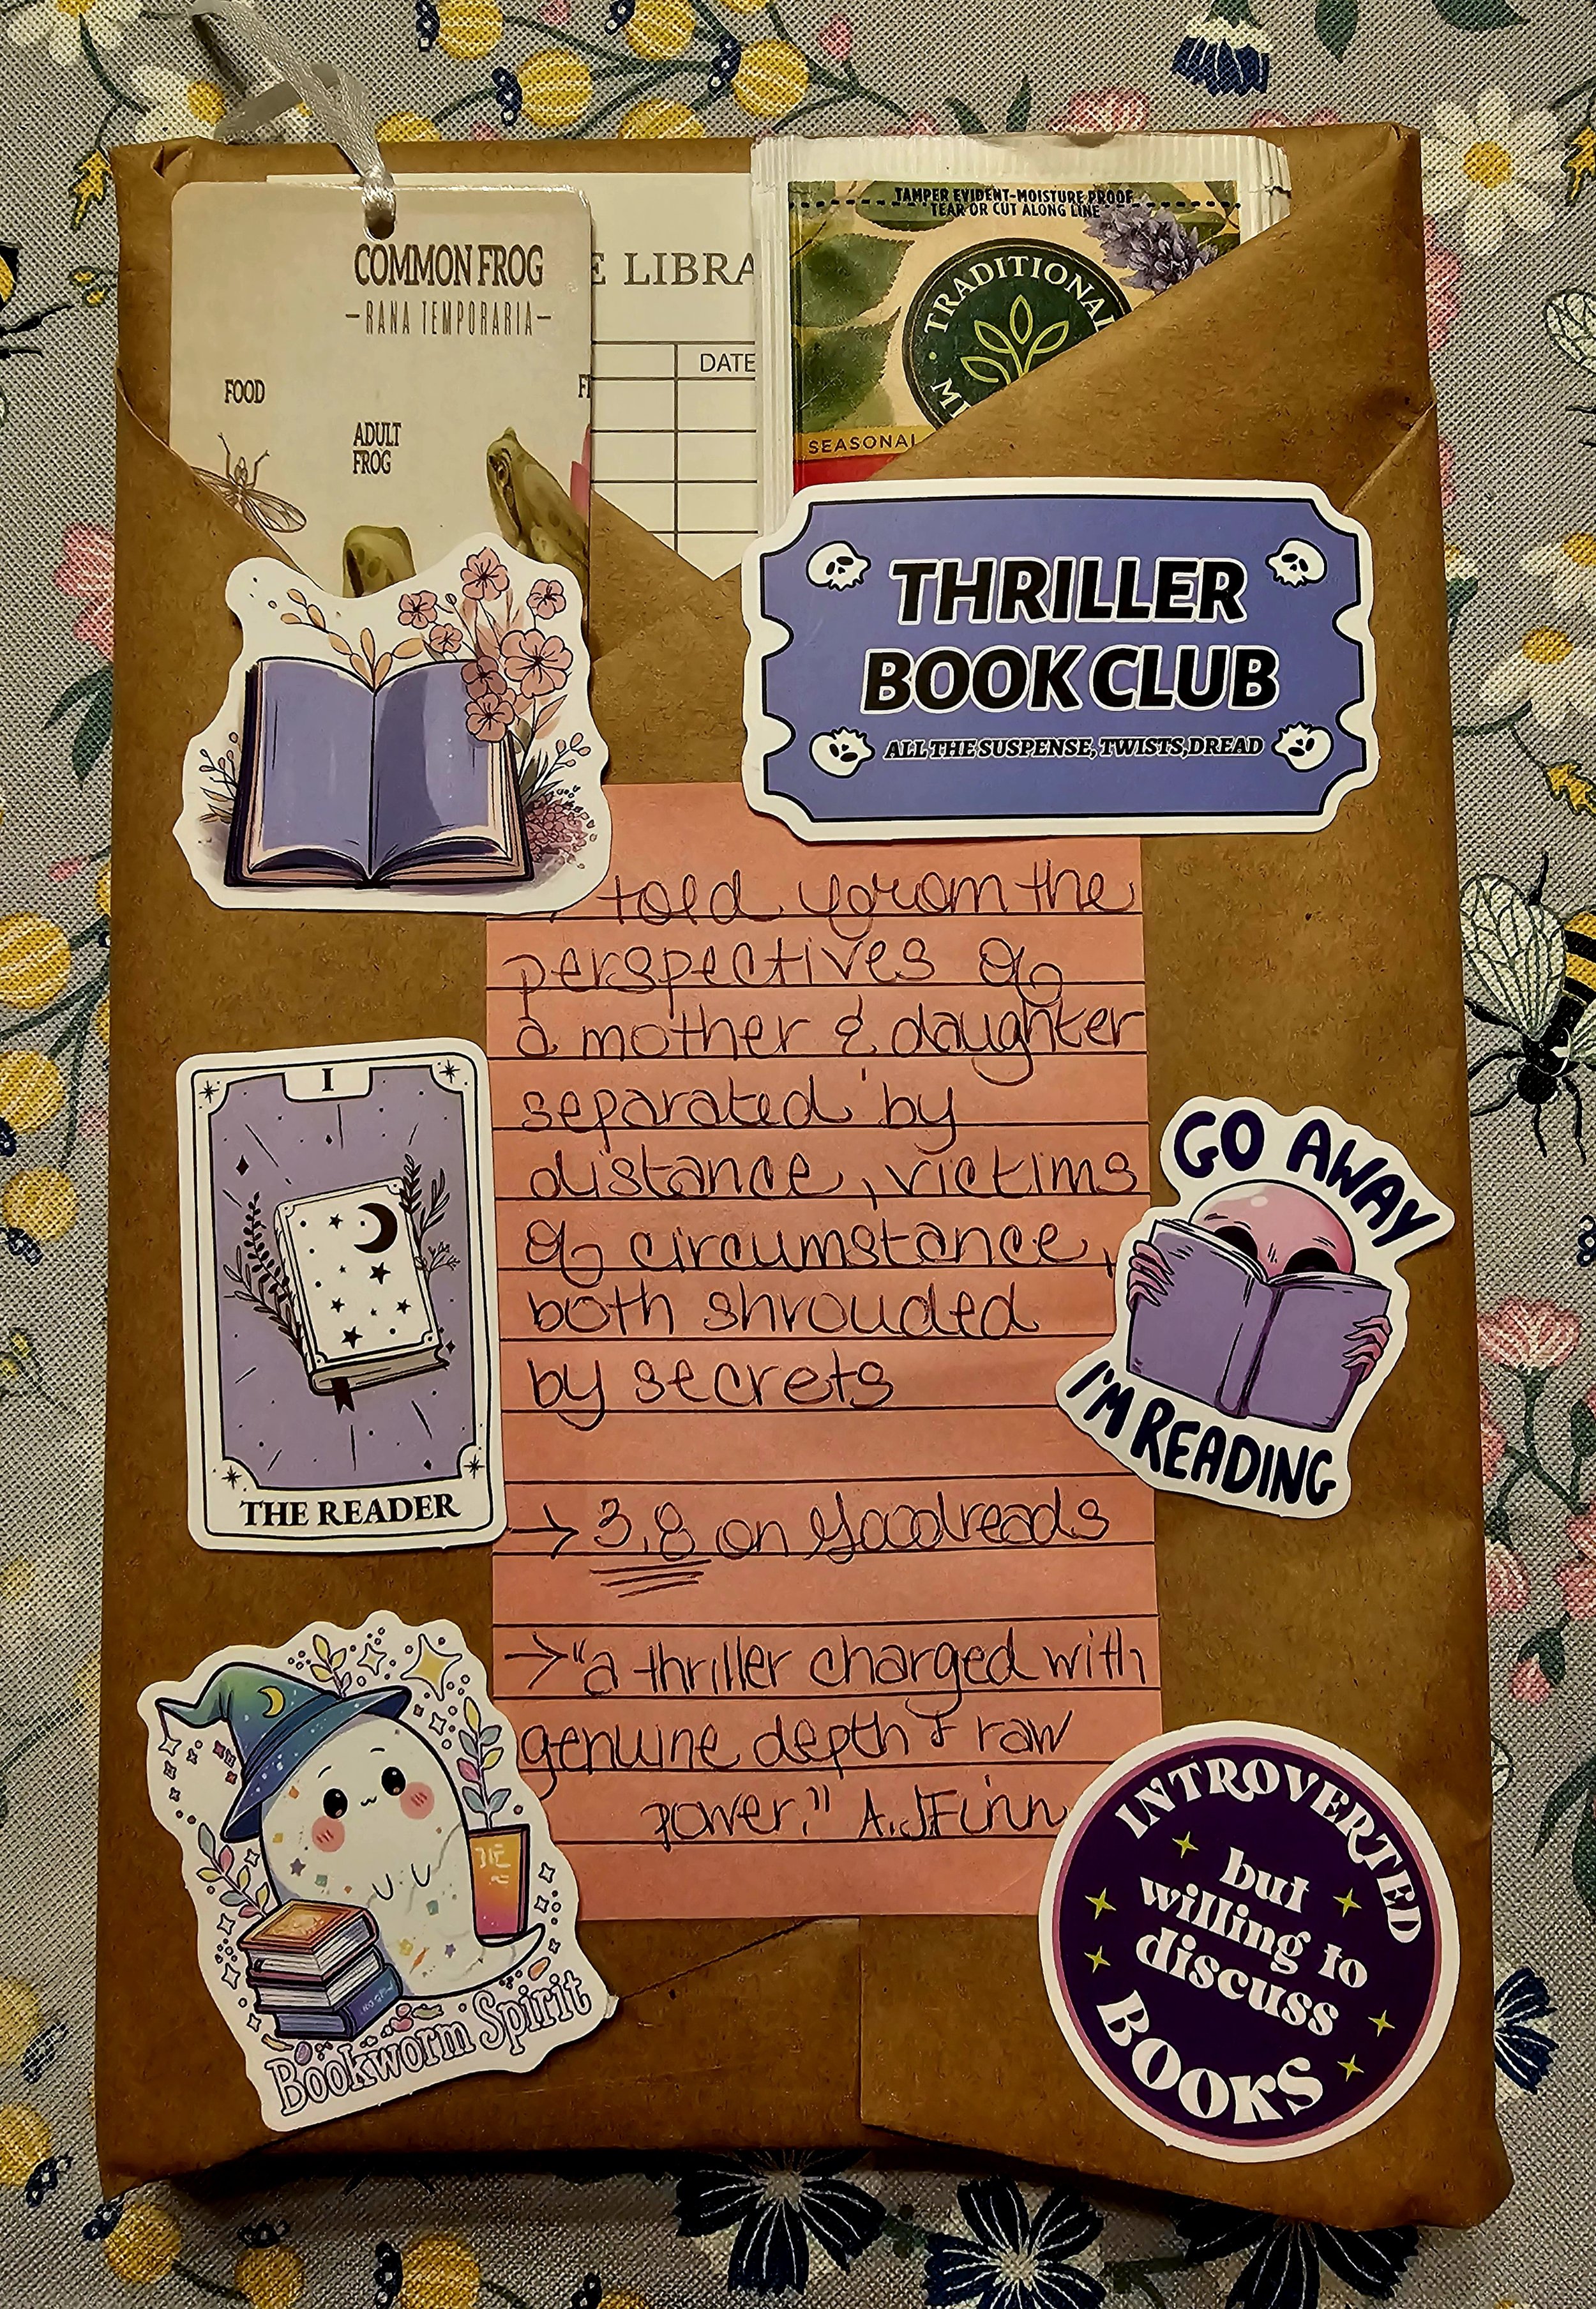 TAMPER EVIDENT-MOISTURE PROOF
TEAR OR CUT ALONG LINE
COMMON FROG
-RANA TEMPORARIA-
FOOD
ADULT
FROG
E LIBRA
DATE
TRADITIONAL
SEASONAL
THRILLER
BOOK CLUB
ALL THE SUSPENSE, TWISTS,DREAD
told from the
perspectives of
a mother & daughter
separated by
distance, victims
of circumstance,
both shrouded
by secrets
→ 3.8 on Goodreads
→ "a thriller charged with
genuine depth & raw
power." A.J Finn
I
THE READER
GO AWAY
I'M READING
Bookworm Spirit
INTROVERTED
but
willing to
discuss
BOOKS